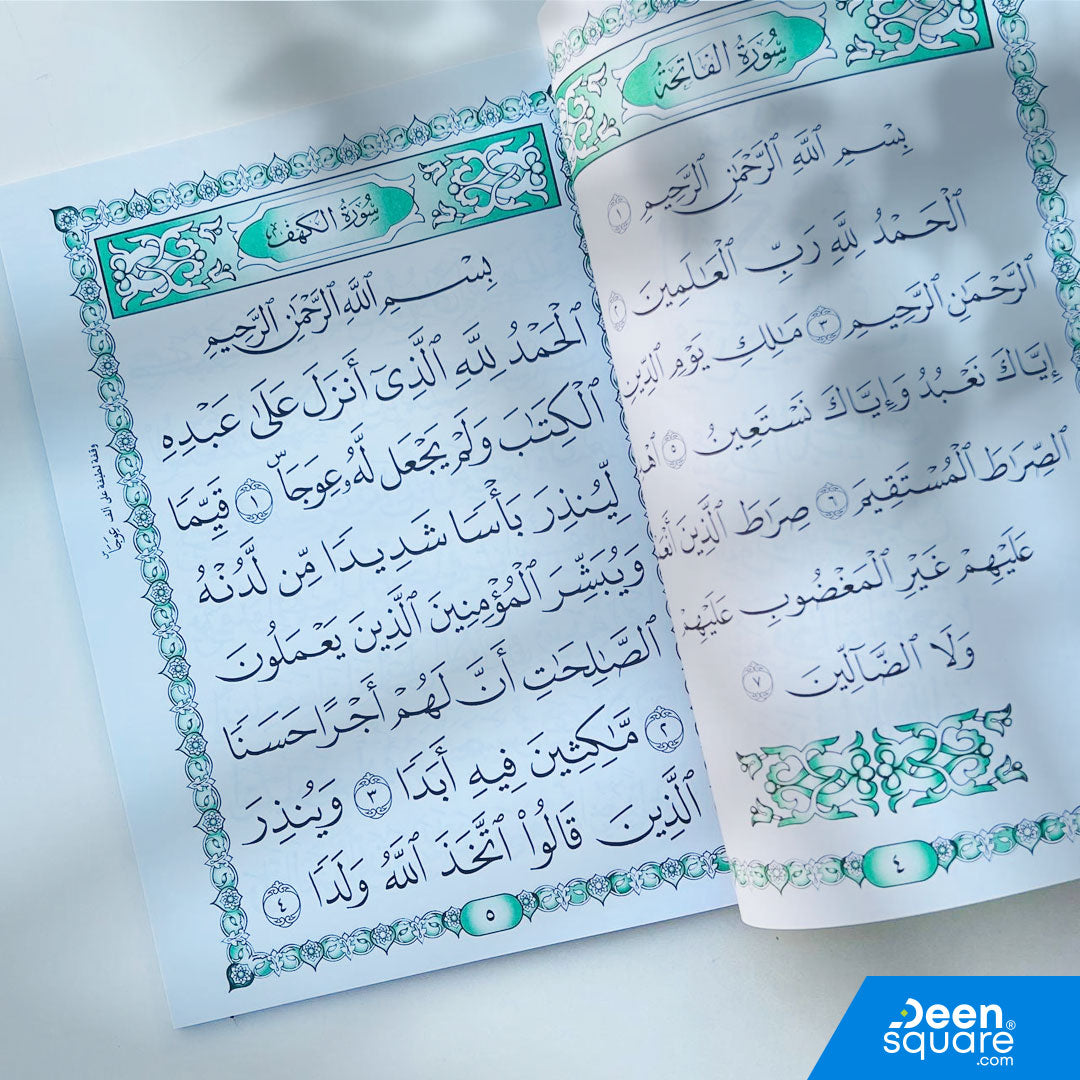 سُورَةُ الفَاتِحَةِ
بِسْمِ ٱللَّهِ ٱلرَّحْمَٰنِ ٱلرَّحِيمِ ١
ٱلْحَمْدُ لِلَّهِ رَبِّ ٱلْعَٰلَمِينَ ٢
ٱلرَّحْمَٰنِ ٱلرَّحِيمِ ٣ مَٰلِكِ يَوْمِ ٱلدِّينِ
إِيَّاكَ نَعْبُدُ وَإِيَّاكَ نَسْتَعِينُ ٥
ٱلصِّرَاطَ ٱلْمُسْتَقِيمَ ٦ صِرَاطَ ٱلَّذِينَ
عَلَيْهِمْ غَيْرِ ٱلْمَغْضُوبِ عَلَيْهِمْ
وَلَا ٱلضَّآلِّينَ ٧
٤
سُورَةُ الكَهْفِ
بِسْمِ ٱللَّهِ ٱلرَّحْمَٰنِ ٱلرَّحِيمِ
ٱلْحَمْدُ لِلَّهِ ٱلَّذِىٓ أَنزَلَ عَلَىٰ عَبْدِهِ
ٱلْكِتَٰبَ وَلَمْ يَجْعَل لَّهُۥ عِوَجَاۜ ١ قَيِّمًا
لِّيُنذِرَ بَأْسًا شَدِيدًا مِّن لَّدُنْهُ
وَيُبَشِّرَ ٱلْمُؤْمِنِينَ ٱلَّذِينَ يَعْمَلُونَ
ٱلصَّٰلِحَٰتِ أَنَّ لَهُمْ أَجْرًا حَسَنًا
٢ مَّٰكِثِينَ فِيهِ أَبَدًا ٣ وَيُنذِرَ
ٱلَّذِينَ قَالُوا۟ ٱتَّخَذَ ٱللَّهُ وَلَدًا ٤
٥
وقفة لطيفة على الف عِوَجَاۜ
Deen
square®
.com